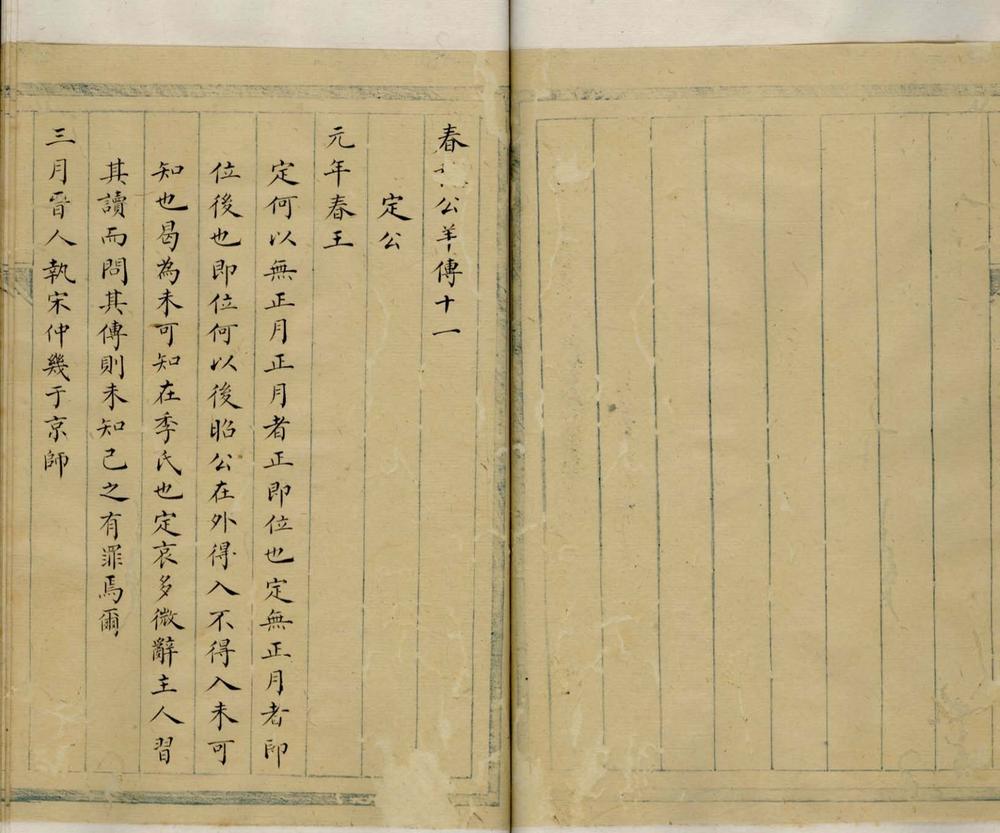 春公羊傳十一
定公
元年春王
定何以無正月正月者正即位也定無正月者即
位後也即位何以後昭公在外得入不得入未可
知也曷為未可知在季氏也定哀多微辭主人習
其讀而問其傳則未知己之有罪焉爾
三月晉人執宋仲幾于京師